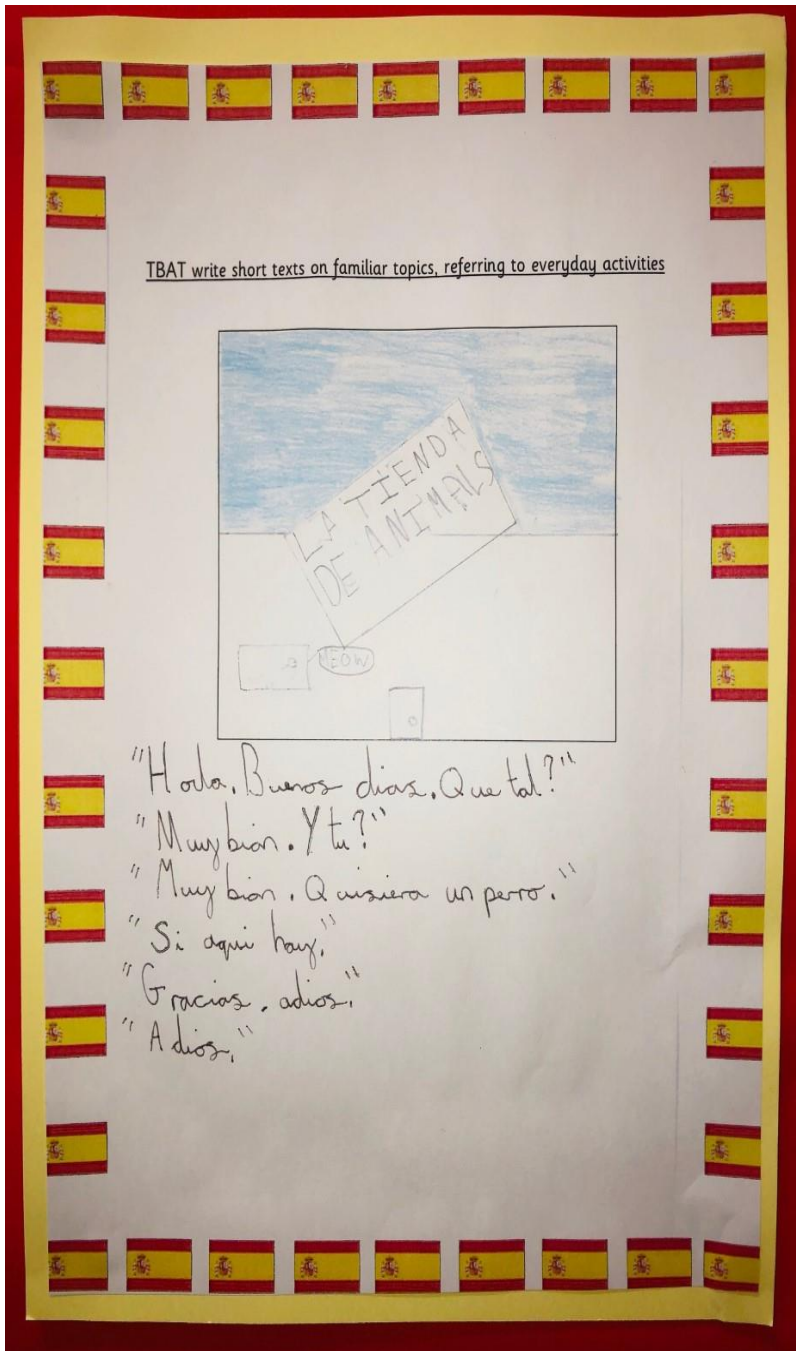 TBAT write short texts on familiar topics, referring to everyday activities
LA TIENDA
DE ANIMALS
MEOW
"Hola. Buenos dias. Que tal?"
"Muy bien. Y tu?"
"Muy bien. Quisiera un perro."
"Si aqui hay."
"Gracias. adios."
"Adios."